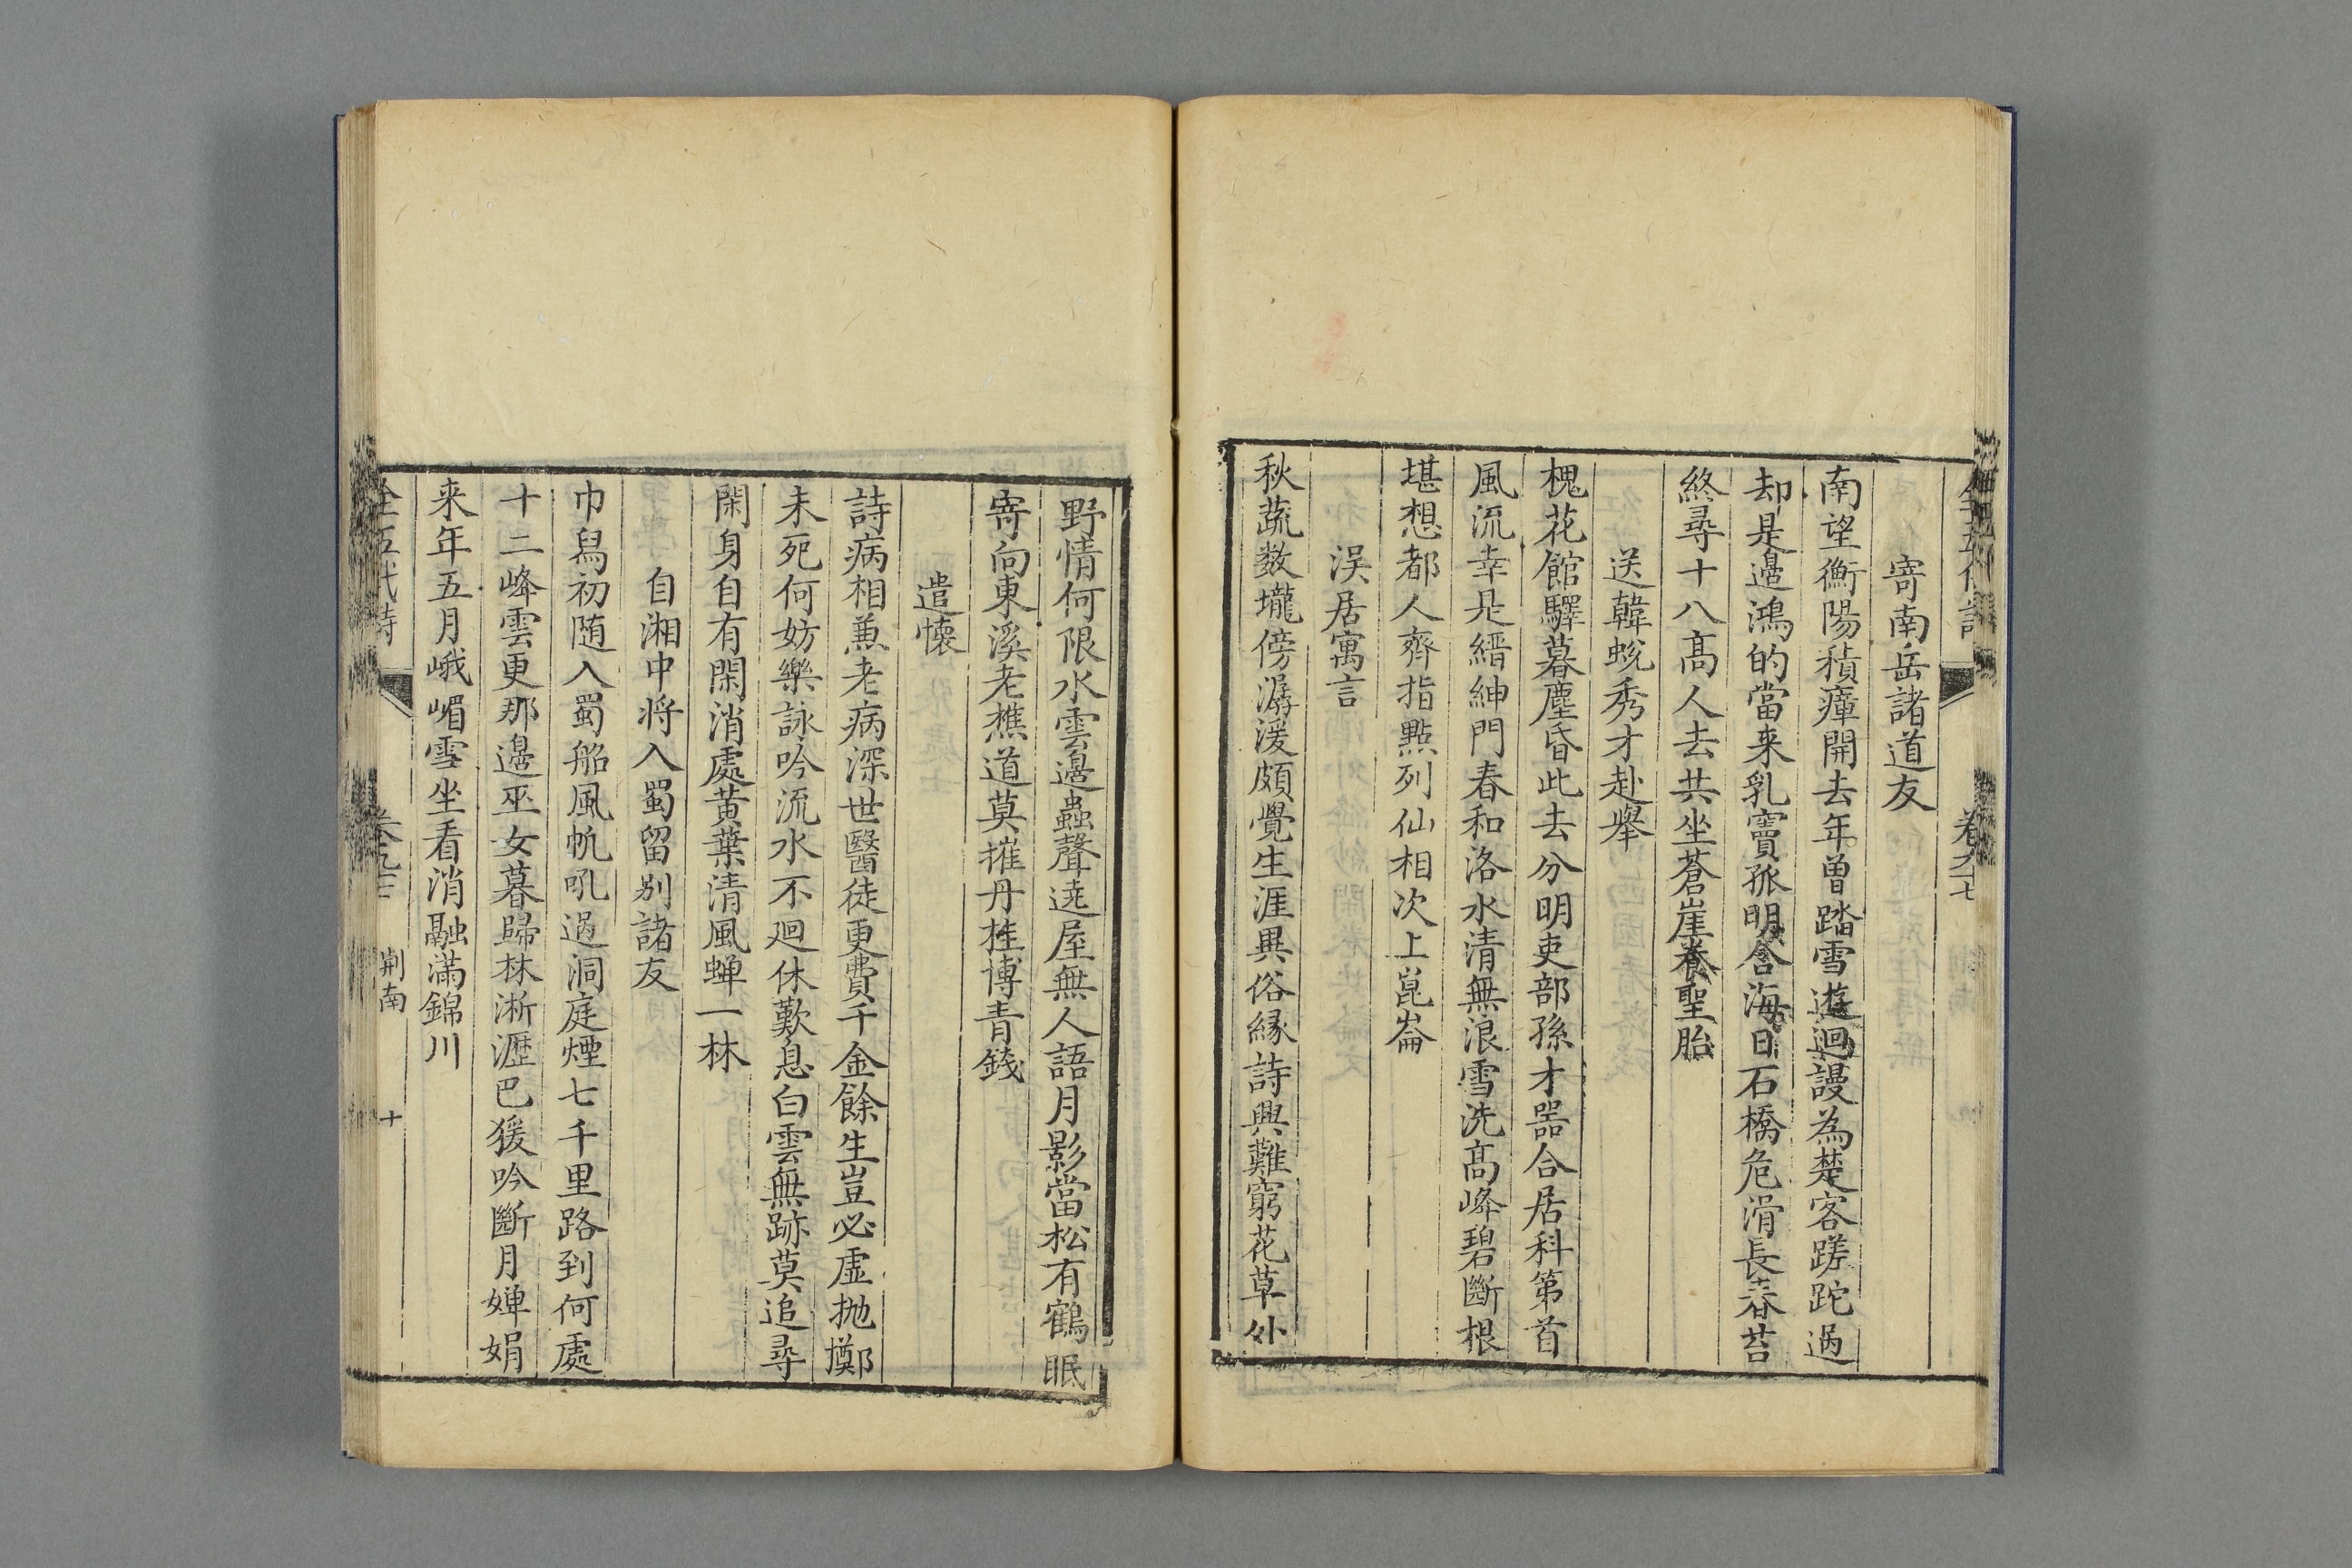 寄南岳諸道友
南望衡陽積瘴開去年曾踏雪遊迴謾為楚客蹉跎過
却是邊鴻的當来乳竇孤明含海日石橋危滑長春苔
終尋十八高人去共坐蒼崖養聖胎
送韓蛻秀才赴舉
槐花館驛暮塵昏此去分明吏部孫才器合居科第首
風流幸是縉紳門春和洛水清無浪雪洗高峰碧斷根
堪想都人齊指點列仙相次上崑崙
渓居寓言
秋蔬数壠傍潺湲頗覺生涯異俗緣詩興難窮花草外
野情何限水雲邊蟲聲遶屋無人語月影當松有鶴眠
寄向東溪老樵道莫摧丹桂博青錢
遣懷
詩病相兼老病深世醫徒更費千金餘生豈必虛抛擲
未死何妨樂詠吟流水不迴休歎息白雲無跡莫追尋
閑身自有閑消處黃葉清風蝉一林
自湘中将入蜀留別諸友
巾舄初随入蜀船風帆吼過洞庭煙七千里路到何處
十二峰雲更那邊巫女暮歸林淅瀝巴猨吟斷月嬋娟
来年五月峨嵋雪坐看消融滿錦川
全五代詩 荆南 十